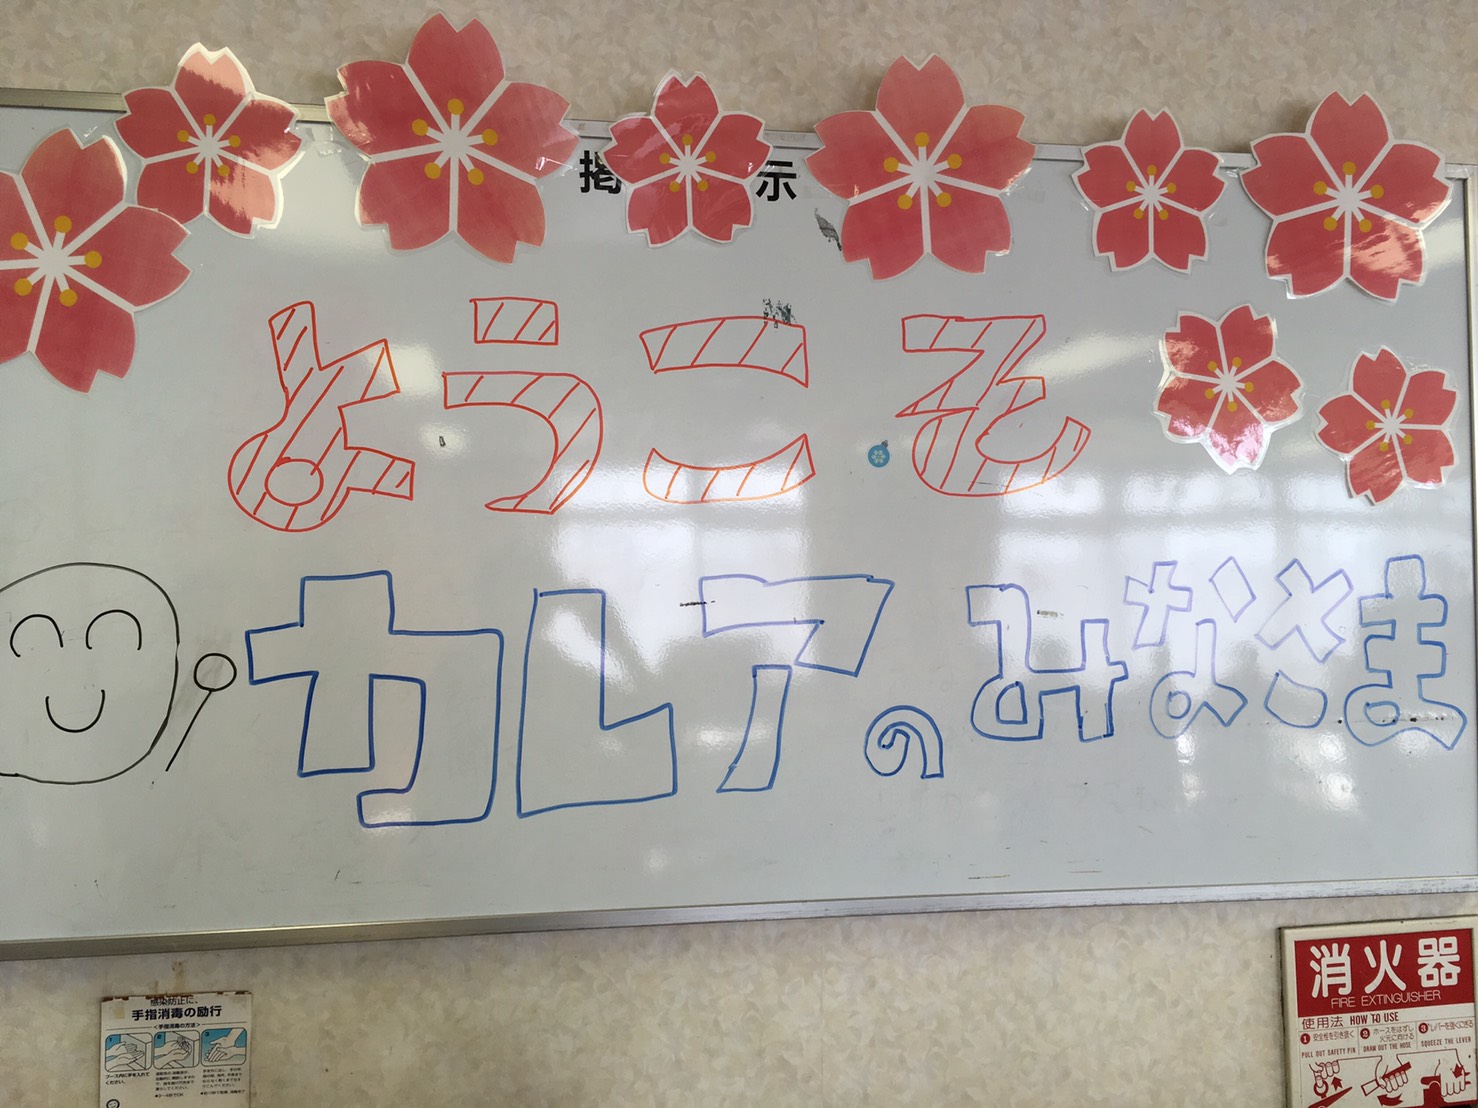 掲 示
ようこそ
カレアのみなさま
感染防止に、
手指消毒の励行
<手指消毒の方法>
消火器
FIRE EXTINGUISHER
使用法 HOW TO USE
1 安全栓を引き抜く
PULL OUT SAFETY PIN
2 ホースをはずし火元に向ける
DRAW OUT THE HOSE
3 レバーを強くにぎる
SQUEEZE THE LEVER